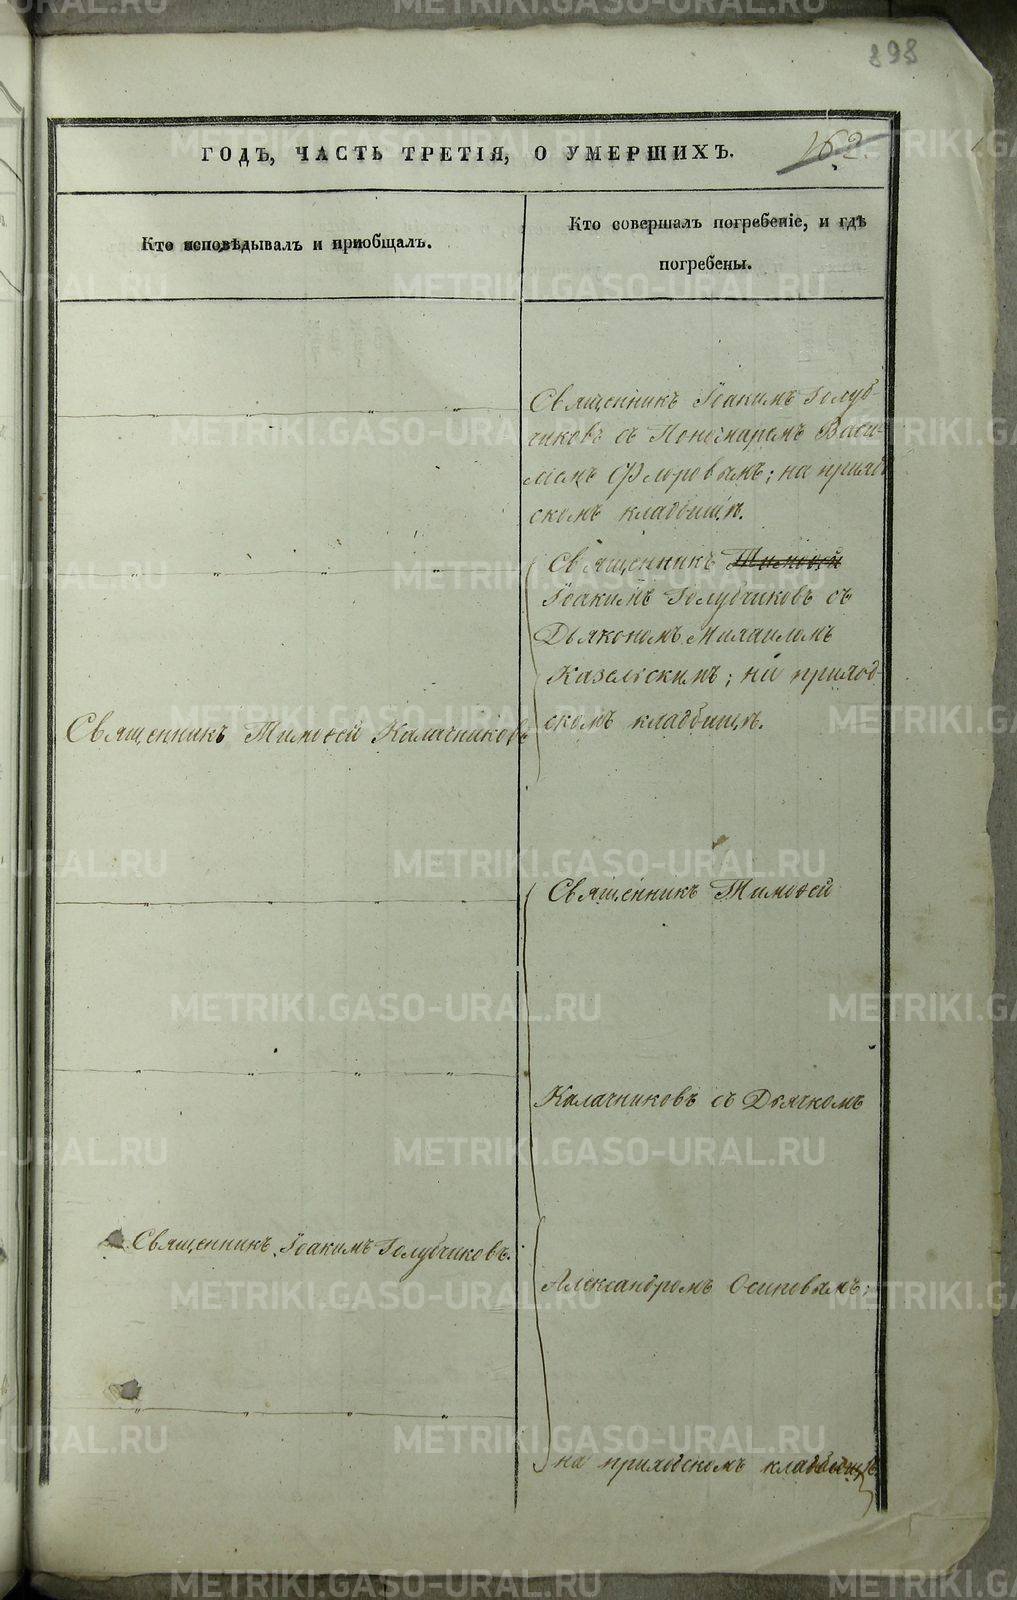 898
ГОДЪ, ЧАСТЬ ТРЕТІЯ, О УМЕРШИХЪ.
162.
Кто исповѣдывалъ и пріобщалъ.
Кто совершалъ погребеніе, и гдѣ
погребены.
Священникъ Іоакимъ Голуб-
чиковъ съ Пономаремъ Васи-
ліемъ Флоровымъ; на приход-
скомъ кладбищѣ.
Священникъ Тимоѳей
Іоакимъ Голубчиковъ съ
Дьякономъ Михаиломъ
Казельскимъ; на приход-
скомъ кладбищѣ.
Священникъ Тимоѳей Калачниковъ
Священникъ Тимоѳей
Калачниковъ съ Дьячкомъ
Священникъ Іоакимъ Голубчиковъ.
Александромъ Осиповымъ;
на приходскомъ кладбищѣ
METRIKI.GASO-URAL.RU